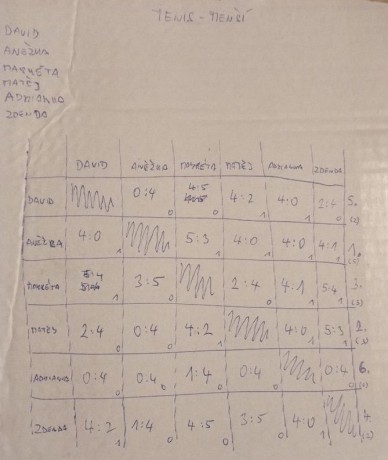 TENIS - MENŠÍ
DAVID
ANEŽKA
MARKÉTA
MATĚJ
ADRIANNA
ZDENDA
DAVID ANEŽKA MARKÉTA MATĚJ ADRIANNA ZDENDA
DAVID 0:4 0 4:5 0 4:2 1 4:0 1 2:4 0 5. (2)
ANEŽKA 4:0 1 5:3 1 4:0 1 4:0 1 4:1 1 1. (5)
MARKÉTA 5:4 1 3:5 0 2:4 0 4:1 1 5:4 1 3. (3)
MATĚJ 2:4 0 0:4 0 4:2 1 4:0 1 5:3 1 2. (3)
ADRIANNA 0:4 0 0:4 0 1:4 0 0:4 0 0:4 0 6. (0)
ZDENDA 4:2 1 1:4 0 4:5 0 3:5 0 4:0 1 4. (2)